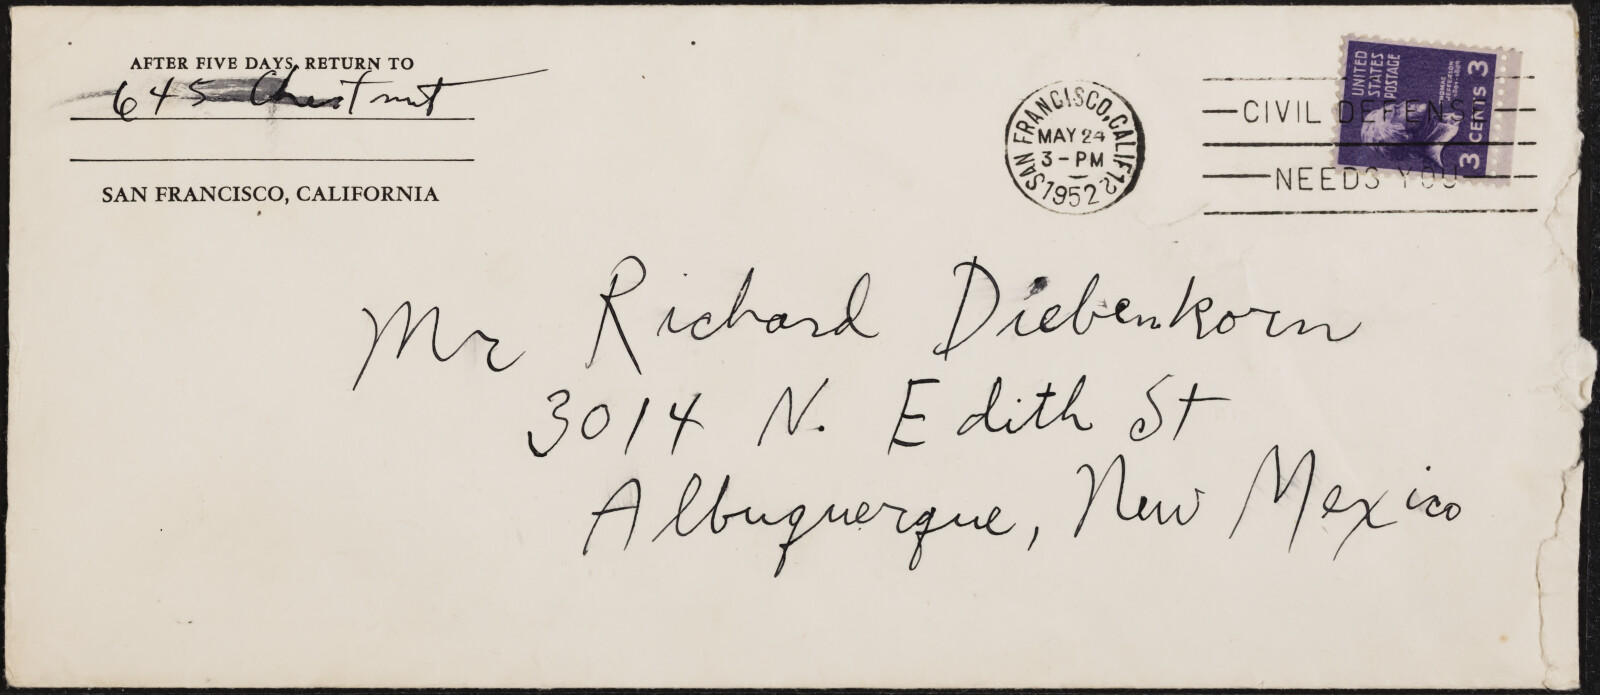 AFTER FIVE DAYS, RETURN TO
645 Chestnut
SAN FRANCISCO, CALIFORNIA
SAN FRANCISCO, CALIF. 12
MAY 24
3 - PM
1952
CIVIL DEFENSE
NEEDS YOU
UNITED
STATES
POSTAGE
THOMAS
JEFFERSON
3 CENTS 3
Mr Richard Diebenkorn
3014 N. Edith St
Albuquerque, New Mexico